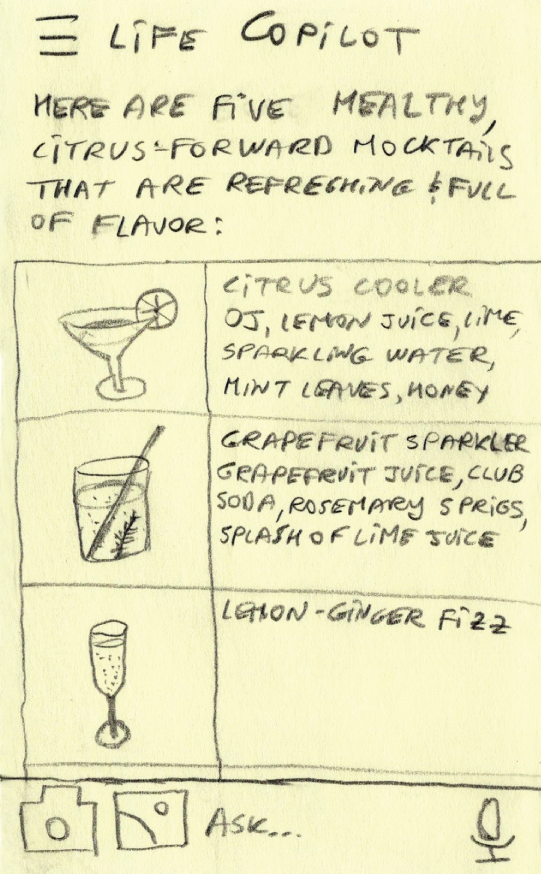 LIFE COPILOT
HERE ARE FIVE HEALTHY,
CITRUS-FORWARD MOCKTAILS
THAT ARE REFRESHING & FULL
OF FLAVOR:
CITRUS COOLER
OJ, LEMON JUICE, LIME,
SPARKLING WATER,
MINT LEAVES, HONEY
GRAPEFRUIT SPARKLER
GRAPEFRUIT JUICE, CLUB
SODA, ROSEMARY SPRIGS,
SPLASH OF LIME JUICE
LEMON-GINGER FIZZ
ASK...